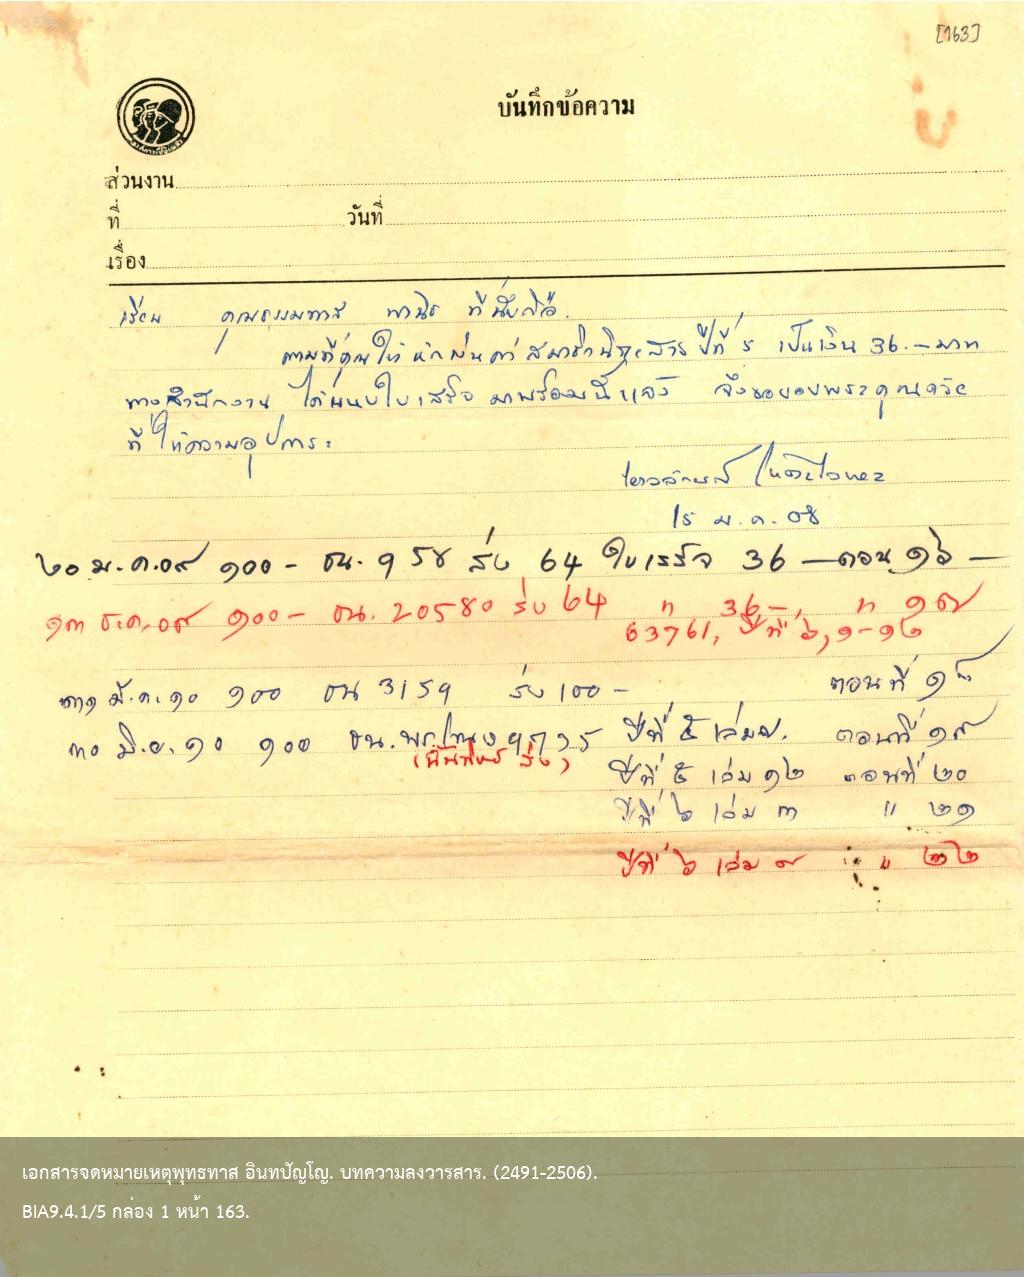 [163]
บันทึกข้อความ
ส่วนงาน
ที่ วันที่
เรื่อง
เรียน คุณธรรมทาส พานิช ที่นับถือ
ตามที่คุณให้หักเงินค่าสมาชิก สาร ปีที่ ๕ เป็นเงิน 36.– บาท
ทางสำนักงาน ได้แนบใบเสร็จ มาพร้อมนี้แล้ว จึงขอขอบพระคุณด้วย
ที่ให้ความอุปการะ
15 ม.ค. 08
๒๐ ม.ค.๐๙ ๑๐๐ – ธน. ๑ 58 ส่ง 64 ใบเสร็จ 36 – ตอน ๑๖ –
๑๓ ธ.ค.๐๙ ๑๐๐ – ธน. 20580 ส่ง 64 " 36 –, " ๑๗
63761, ปีที่ ๖, ๑-๑๒
๓๑ มี.ค.๑๐ ๑๐๐ ธน 3159 ส่ง 100 – ตอนที่ ๑๘
๓๐ มิ.ย.๑๐ ๑๐๐ ธน. ปีที่ ๕ เล่ม ๗. ตอนที่ ๑๙
ส่ง)
ปีที่ ๕ เล่ม ๑๒ ตอนที่ ๒๐
ปีที่ ๖ เล่ม ๓ " ๒๑
ปีที่ ๖ เล่ม ๙ " ๒๒
เอกสารจดหมายเหตุพุทธทาส อินทปัญโญ. บทความลงวารสาร. (2491-2506).
BIA9.4.1/5 กล่อง 1 หน้า 163.